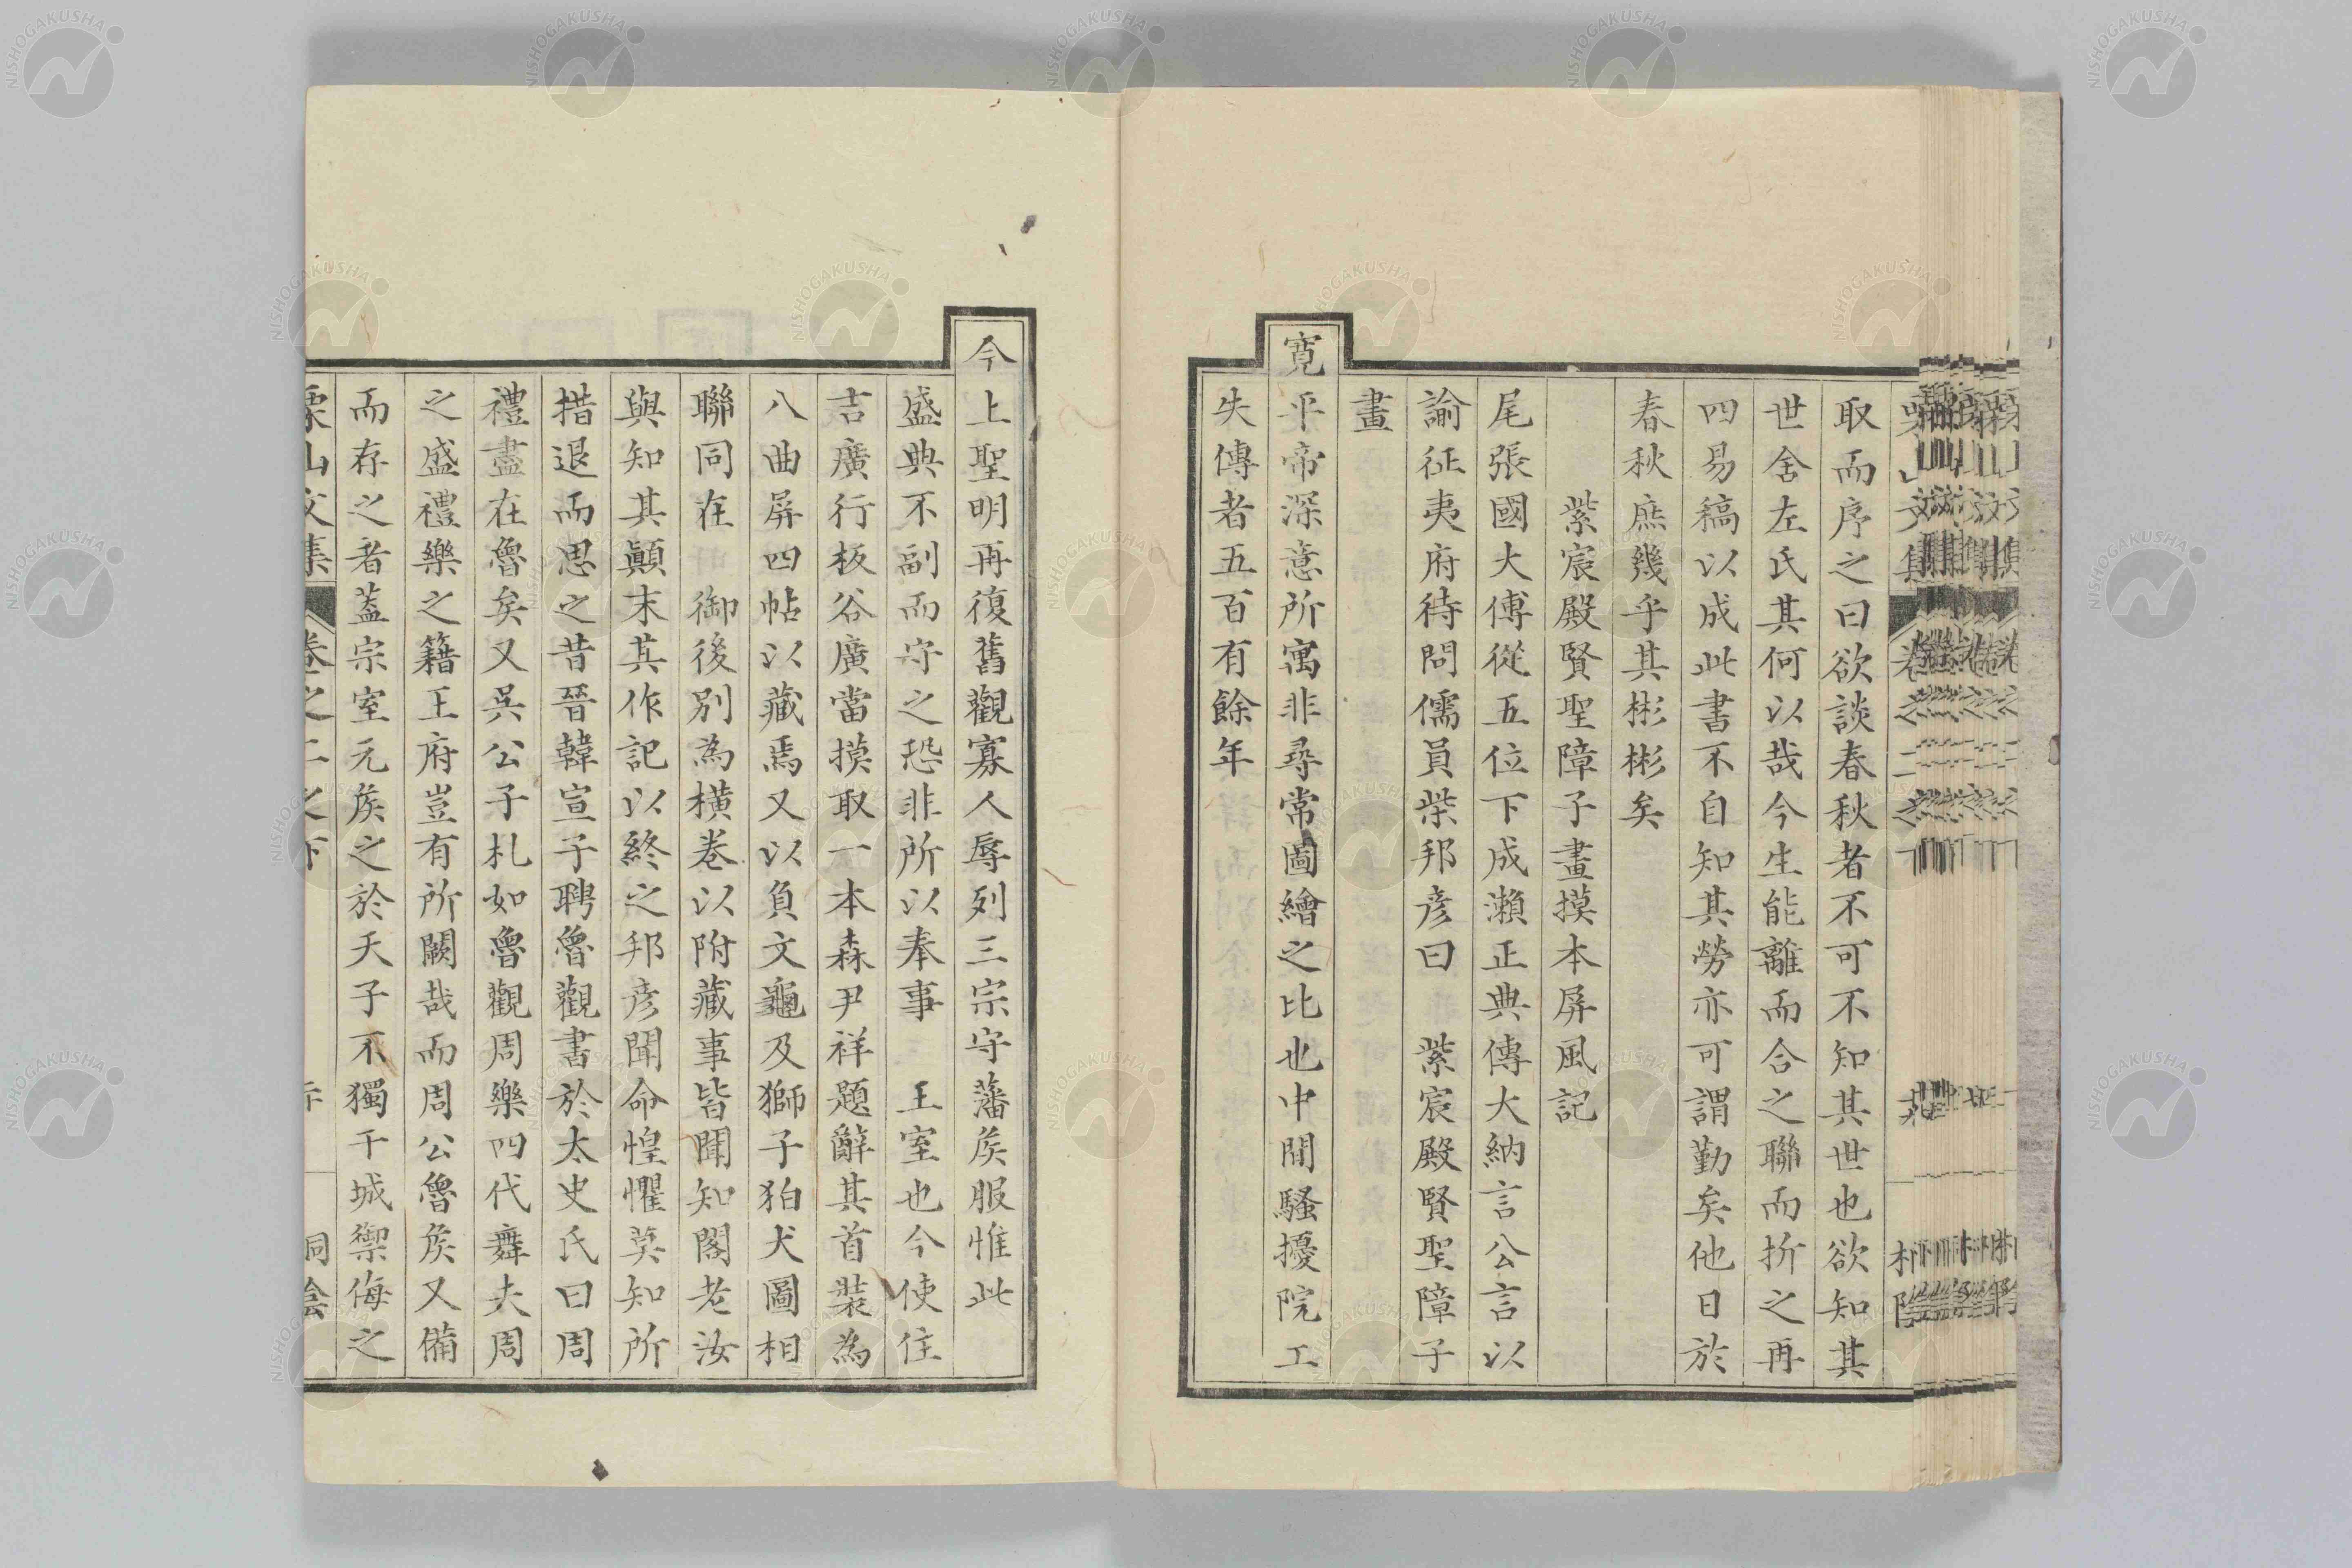 取而序之曰欲談春秋者不可不知其世也欲知其
世舍左氏其何以哉今生能離而合之聯而折之再
四易稿以成此書不自知其勞亦可謂勤矣他日於
春秋庶幾乎其彬彬矣
紫宸殿賢聖障子畫摸本屏風記
尾張國大傅從五位下成瀨正典傳大納言公言以
諭征夷府待問儒員柴邦彦曰　紫宸殿賢聖障子
畫
寛平帝深意所寓非尋常圖繪之比也中間騷擾院工
失傳者五百有餘年
今上聖明再復舊觀寡人辱列三宗守藩矦服惟此
盛典不副而守之恐非所以奉事　王室也今使住
吉廣行板谷廣當摸取一本森尹祥題辭其首裝為
八曲屏四帖以藏焉又以負文龜及獅子狛犬圖相
聯同在　御後別為橫卷以附藏事皆聞知閣老汝
與知其顚末其作記以終之邦彦聞命惶懼莫知所
措退而思之昔晉韓宣子聘魯觀書於太史氏曰周
禮盡在魯矣又吳公子札如魯觀周樂四代舞夫周
之盛禮樂之籍王府豈有所闕哉而周公魯矦又備
而存之者蓋宗室元矦之於天子不獨干城禦侮之
栗山文集　卷之二之下
NISHOGAKUSHA